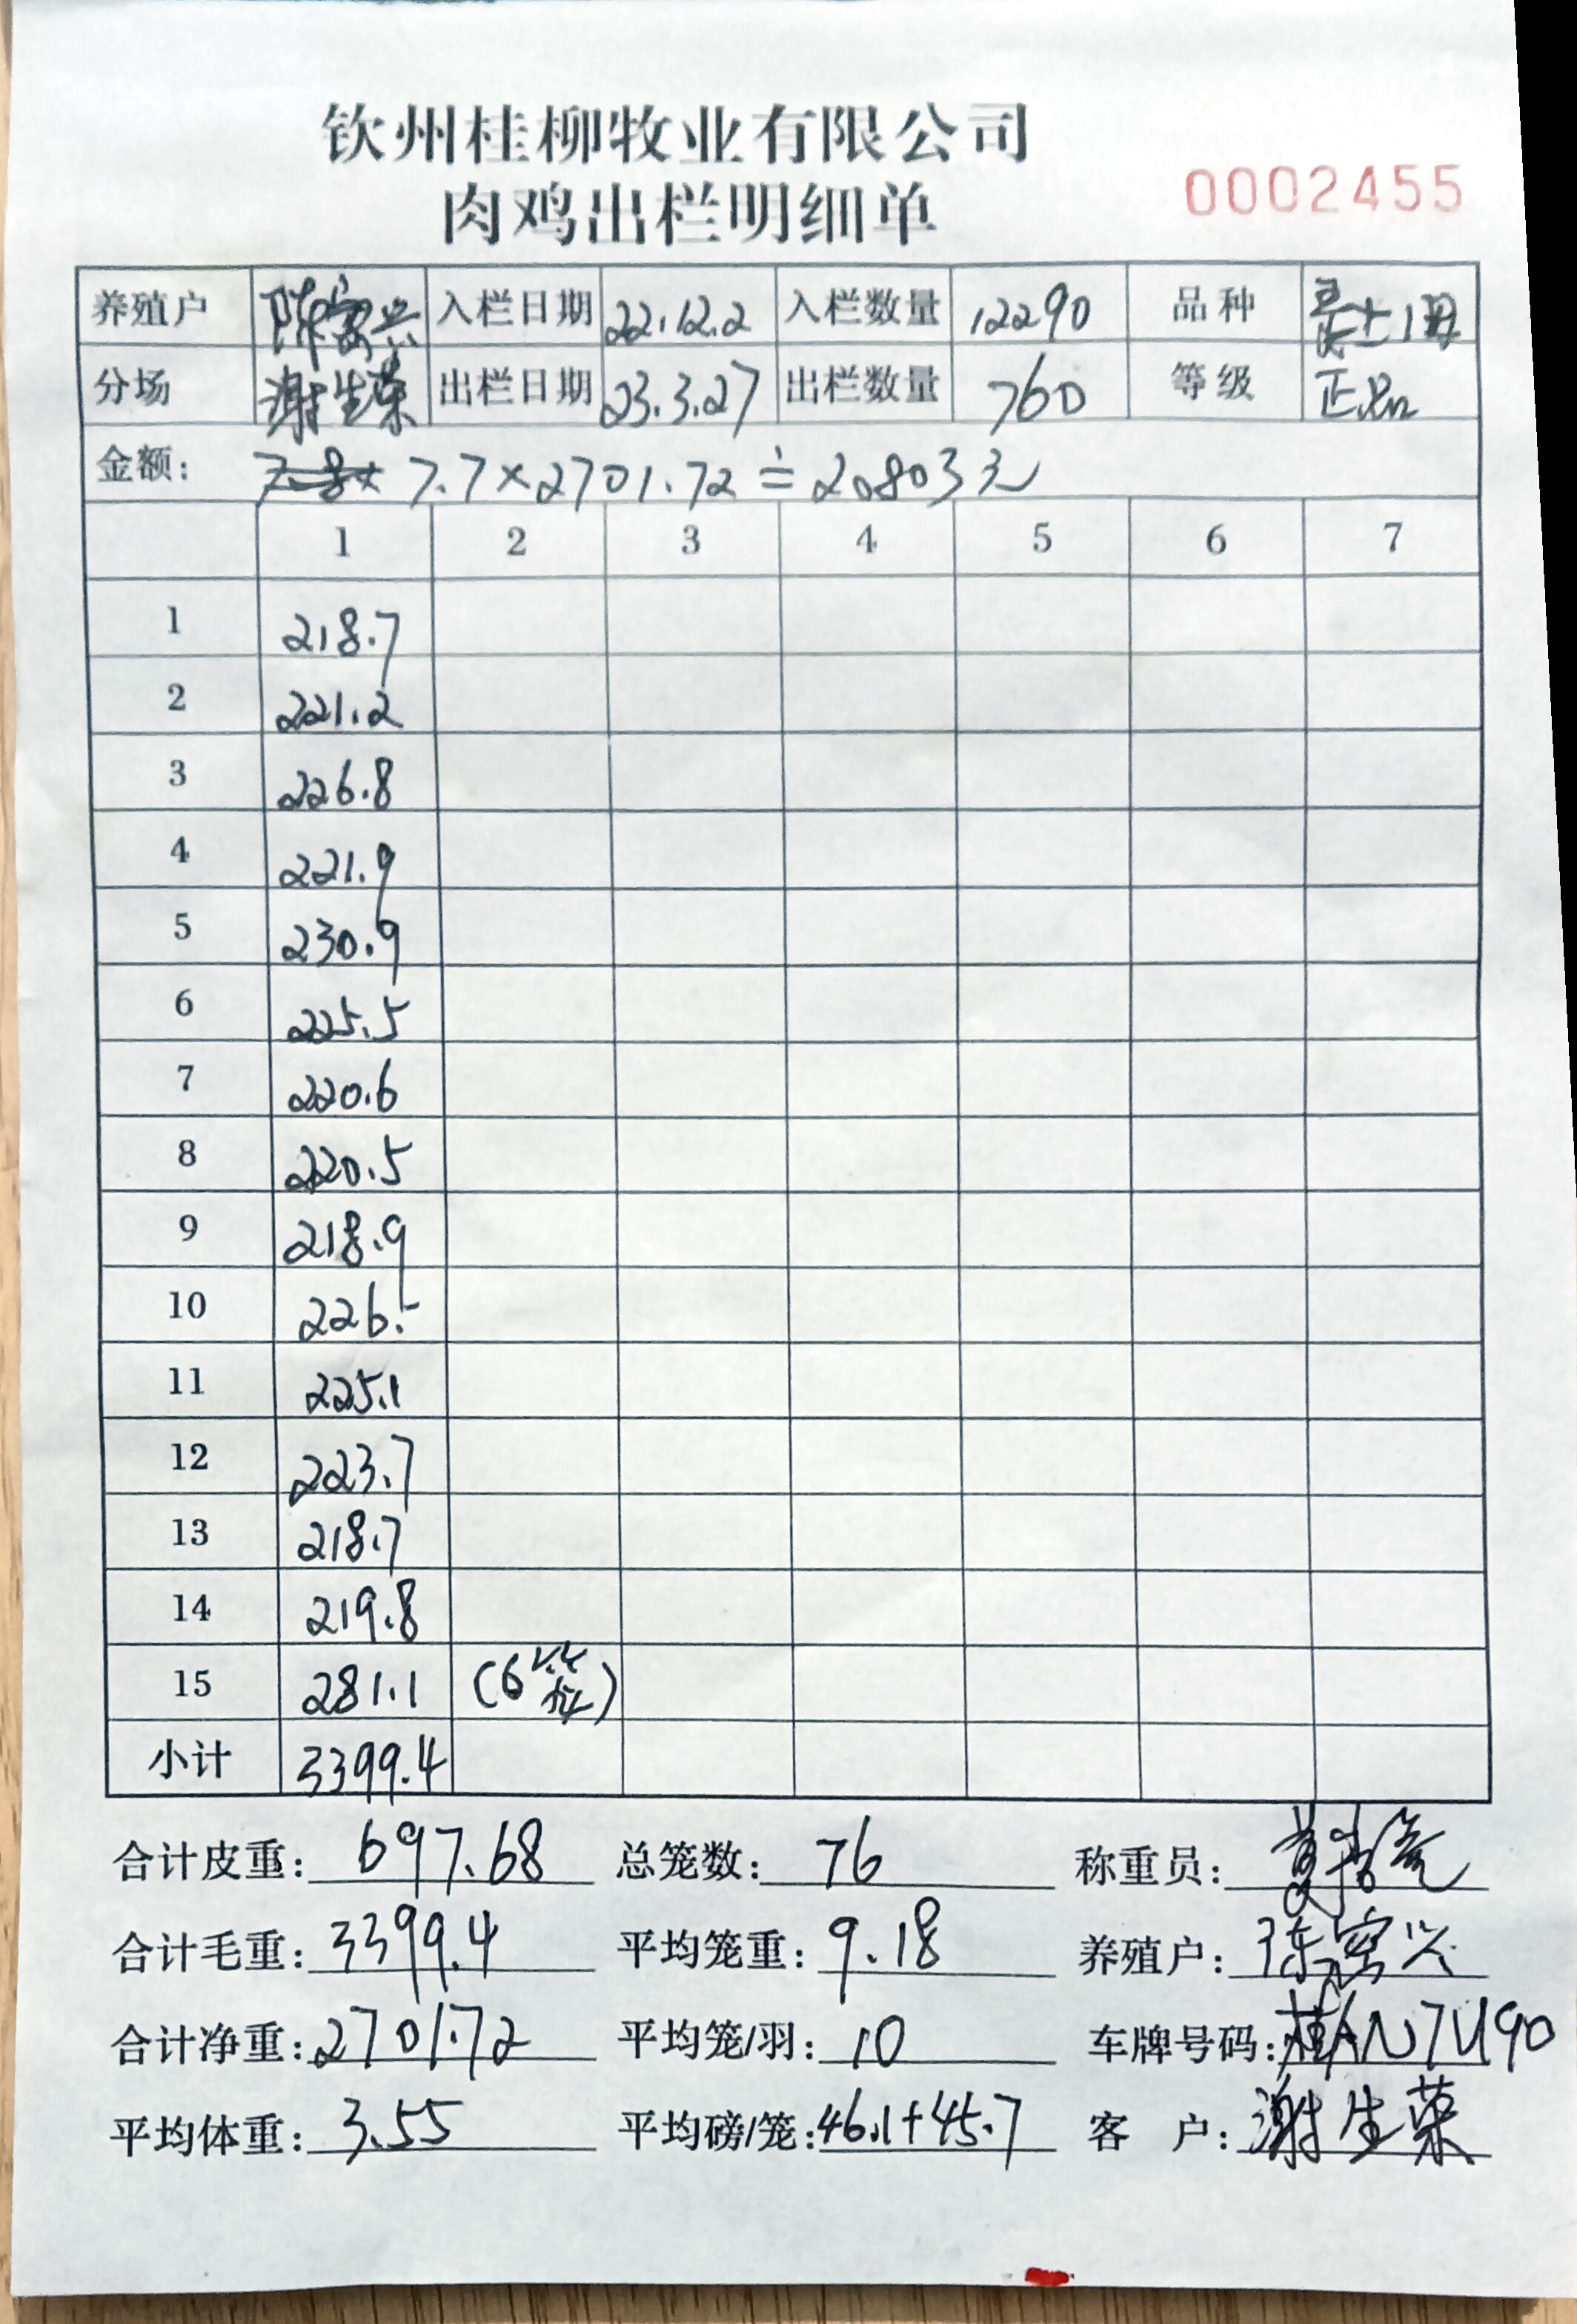 钦州桂柳牧业有限公司
肉鸡出栏明细单
0002455
养殖户 陈寓兴 入栏日期 22.12.2 入栏数量 12290 品种 灵土1母
分场 谢生荣 出栏日期 23.3.27 出栏数量 760 等级 正品
金额: 7.7×2701.72≐20803元
1 2 3 4 5 6 7
1 218.7
2 221.2
3 226.8
4 221.9
5 230.9
6 225.5
7 220.6
8 220.5
9 218.9
10 226.-
11 225.1
12 223.7
13 218.7
14 219.8
15 281.1 (6笼)
小计 3399.4
合计皮重: 697.68 总笼数: 76 称重员:
合计毛重: 3399.4 平均笼重: 9.18 养殖户: 陈寓兴
合计净重: 2701.72 平均笼/羽: 10 车牌号码: 桂AN7U90
平均体重: 3.55 平均磅/笼: 46.1+45.7 客 户: 谢生荣